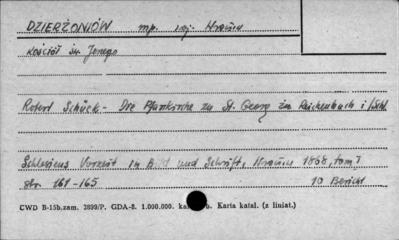 DZIERŻONIÓW mp. woj. Wrocław
Kościół św. Jerzego
Robert Schück - Die Pfarrkirche zu St. Georg in Reichenbach i/Schl.
Schlesiens Vorzeit in Bild und Schrift, Wrocław 1868, tom I
str. 161-165 10 Bericht
CWD B-15b.zam. 2899/P. GDA-8. 1.000.000. Karta katal. (z liniat.)